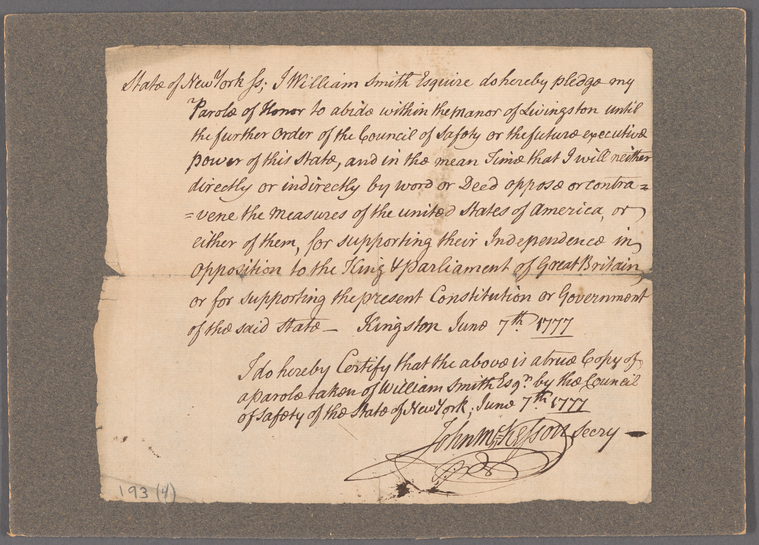 State of New York ss; I William Smith Esquire do hereby pledge my
Parole of Honor to abide within the Manor of Livingston until
the further Order of the Council of Safety or the future executive
power of this State, and in the mean Time that I will neither
directly or indirectly by word or Deed oppose or contra=
=vene the Measures of the united States of America, or
either of them, for supporting their Independence in
Opposition to the King & parliament of Great Britain,
or for supporting the present Constitution or Government
of the said State — Kingston June 7th 1777
I do hereby Certify that the above is a true Copy of
a parole taken of William Smith Esqr. by the Council
of Safety of the State of New York, June 7th 1777
John McKesson Secry —
193 (4)